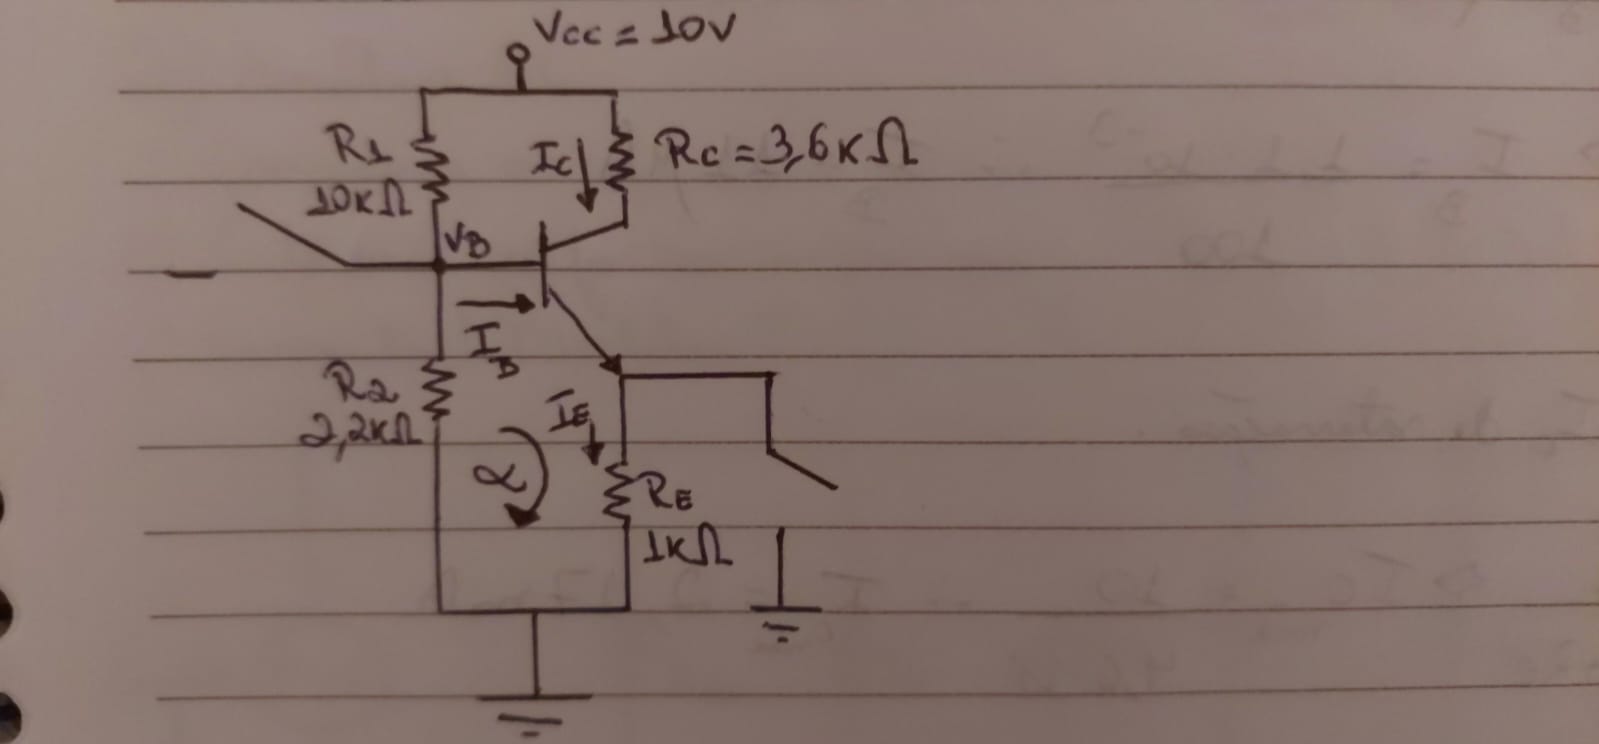 Vcc = 10V
R1
10KΩ
Ic
Rc = 3,6KΩ
VB
IB
R2
2,2KΩ
IE
α
RE
1KΩ